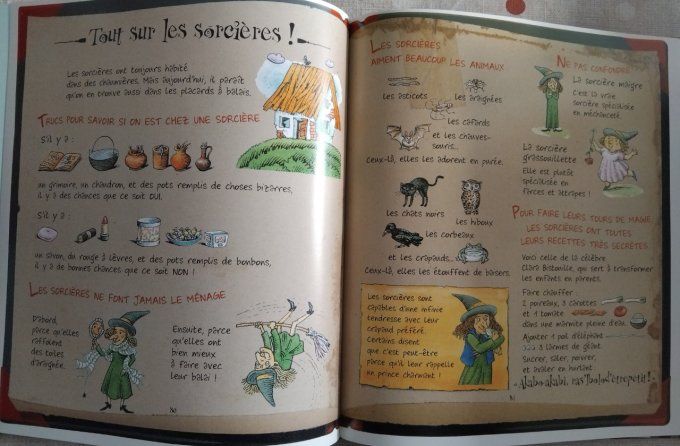 Tout sur les sorcières !
Les sorcières ont toujours habité
dans des chaumières. Mais aujourd'hui, il paraît
qu'on en trouve aussi dans les placards à balais.
TRUCS POUR SAVOIR SI ON EST CHEZ UNE SORCIÈRE
S'il y a :
un grimoire, un chaudron, et des pots remplis de choses bizarres,
il y a des chances que ce soit OUI.
S'il y a :
un savon, du rouge à lèvres, et des pots remplis de bonbons,
il y a de bonnes chances que ce soit NON !
LES SORCIÈRES NE FONT JAMAIS LE MÉNAGE
D'abord,
parce qu'elles
raffolent
des toiles
d'araignée.
Ensuite, parce
qu'elles ont
bien mieux
à faire avec
leur balai !
80
LES SORCIÈRES
AIMENT BEAUCOUP LES ANIMAUX
les asticots
les araignées
les cafards
et les chauves-
souris...
Ceux-là, elles les adorent en purée.
les chats noirs
les hiboux
les corbeaux
et les crapauds...
Ceux-là, elles les étouffent de baisers.
Les sorcières sont
capables d'une infinie
tendresse avec leur
crapaud préféré.
Certains disent
que c'est peut-être
parce qu'il leur rappelle
un prince charmant !
NE PAS CONFONDRE
La sorcière maigre
C'est la vraie
sorcière spécialisée
en méchanceté.
La sorcière
grassouillette
Elle est plutôt
spécialisée en
farces et attrapes !
POUR FAIRE LEURS TOURS DE MAGIE,
LES SORCIÈRES ONT TOUTES
LEURS RECETTES TRÈS SECRÈTES.
Voici celle de la célèbre
Clara Bistouille, qui sert à transformer
les enfants en parents.
Faire chauffer
2 poireaux, 3 carottes
et 1 tomate
dans une marmite pleine d'eau.
Ajouter 1 poil d'éléphant
3 larmes de gland.
Sucrer, saler, poivrer,
et avaler en hurlant
81